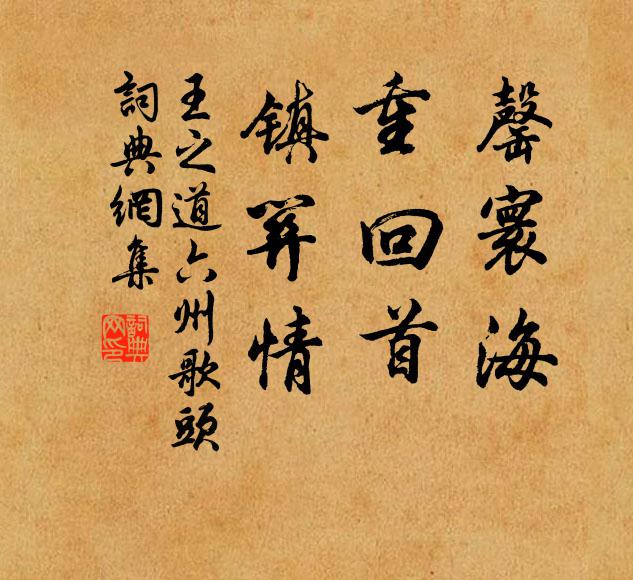 罄寰海
重回首
鎮關情
王之道六州歌頭
詞典網集
詞典
网印